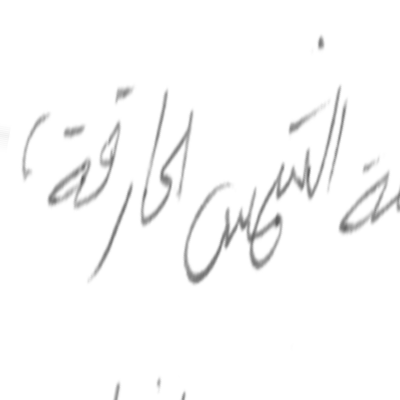 الشمس الحارقة،